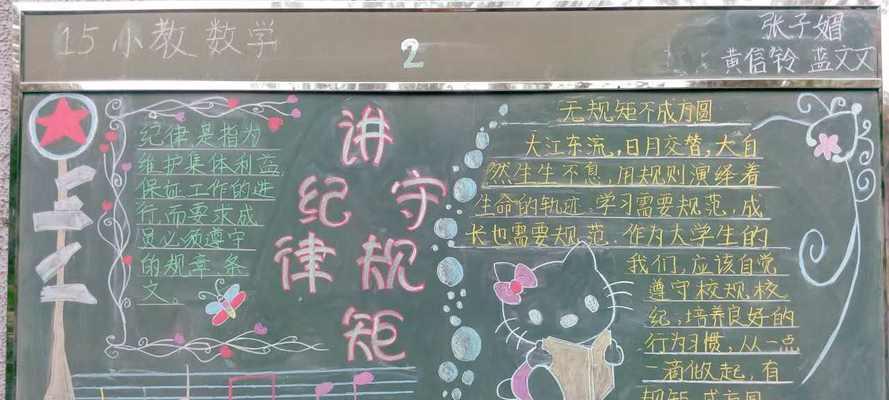 15小教数学
2
张子媚
黄信铃 蓝文文
纪律是指为
维护集体利益,
保证工作的进
行,而要求成
员必须遵守
的规章、条
文。
讲
纪 守
律 规
矩
无规矩不成方圆
大江东流,日月交替,大自
然生生不息,用规则演绎着
生命的轨迹.学习需要规范,成
长也需要规范.作为大学生的
我们,应该自觉
遵守校规、校
纪,培养良好的
行为习惯,从一点
一滴做起,有
规矩,成方圆